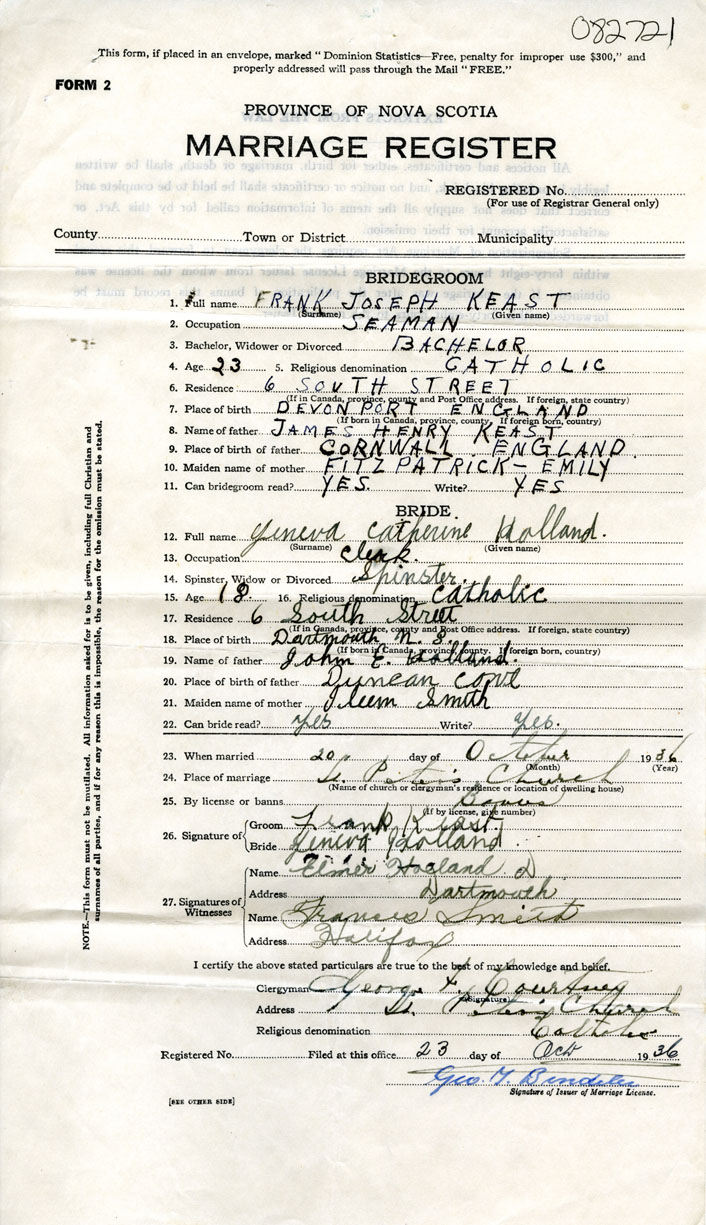 082721
This form, if placed in an envelope, marked "Dominion Statistics—Free, penalty for improper use $300," and
properly addressed will pass through the Mail "FREE."
FORM 2
PROVINCE OF NOVA SCOTIA
MARRIAGE REGISTER
REGISTERED No.
(For use of Registrar General only)
County Town or District Municipality
BRIDEGROOM
1. Full name FRANK JOSEPH KEAST
(Surname) (Given name)
2. Occupation SEAMAN
3. Bachelor, Widower or Divorced BACHELOR
4. Age 23 5. Religious denomination CATHOLIC
6. Residence 6 SOUTH STREET
(If in Canada, province, county and Post Office address. If foreign, state country)
7. Place of birth DEVONPORT ENGLAND
(If born in Canada, province, county. If foreign born, country)
8. Name of father JAMES HENRY KEAST
9. Place of birth of father CORNWALL ENGLAND.
10. Maiden name of mother FITZPATRICK - EMILY
11. Can bridegroom read? YES. Write? YES
BRIDE.
12. Full name Geneva Catherine Holland.
(Surname) (Given name)
13. Occupation Clerk.
14. Spinster, Widow or Divorced Spinster.
15. Age 18 16. Religious denomination Catholic
17. Residence 6 South Street
(If in Canada, province, county and Post Office address. If foreign, state country)
18. Place of birth Dartmouth N. S.
(If born in Canada, province, county. If foreign born, country)
19. Name of father John E. Holland.
20. Place of birth of father Duncan Cove
21. Maiden name of mother Smith
22. Can bride read? Yes Write? Yes.
23. When married 20 day of October 1936
(Month) (Year)
24. Place of marriage St. Peter's Church
(Name of church or clergyman's residence or location of dwelling house)
25. By license or banns Banns
(If by license, give number)
26. Signature of Groom Frank Keast.
Bride Geneva Holland.
27. Signatures of Witnesses Name Elmer
Address Dartmouth
Name Francis Smith
Address Halifax
I certify the above stated particulars are true to the best of my knowledge and belief.
Clergyman George F. Courtney
(Signature)
Address St. Peter's Church
Religious denomination Catholic
Registered No. Filed at this office 23 day of Oct 1936
Geo. T.
Signature of Issuer of Marriage License.
[SEE OTHER SIDE]
NOTE.—This form must not be mutilated. All information asked for is to be given, including full Christian and
surnames of all parties, and if for any reason this is impossible, the reason for the omission must be stated.